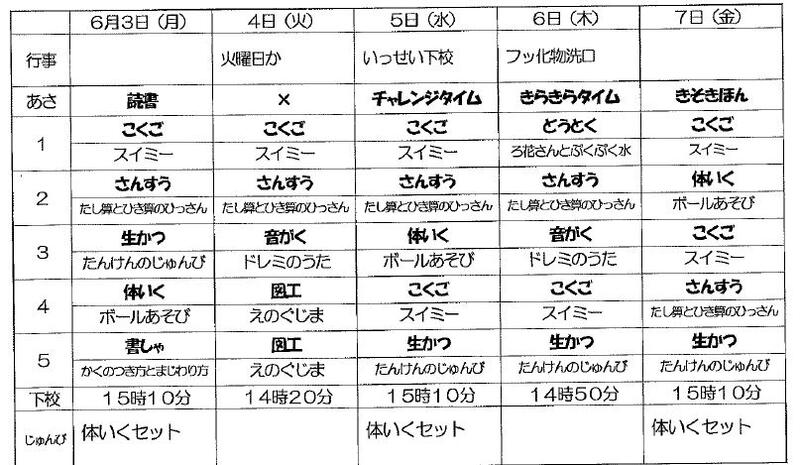 6月3日（月） 4日（火） 5日（水） 6日（木） 7日（金）
行事 火曜日か いっせい下校 フッ化物洗口
あさ 読書 × チャレンジタイム きらきらタイム きそきほん
1 こくご こくご こくご どうとく こくご
スイミー スイミー スイミー ろ花さんとぷくぷく水 スイミー
2 さんすう さんすう さんすう さんすう 体いく
たし算とひき算のひっさん たし算とひき算のひっさん たし算とひき算のひっさん たし算とひき算のひっさん ボールあそび
3 生かつ 音がく 体いく 音がく こくご
たんけんのじゅんび ドレミのうた ボールあそび ドレミのうた スイミー
4 体いく 図工 こくご こくご さんすう
ボールあそび えのぐじま スイミー スイミー たし算とひき算のひっさん
5 書しゃ 図工 生かつ 生かつ 生かつ
かくのつき方とまじわり方 えのぐじま たんけんのじゅんび たんけんのじゅんび たんけんのじゅんび
下校 15時10分 14時20分 15時10分 14時50分 15時10分
じゅんび 体いくセット 体いくセット 体いくセット